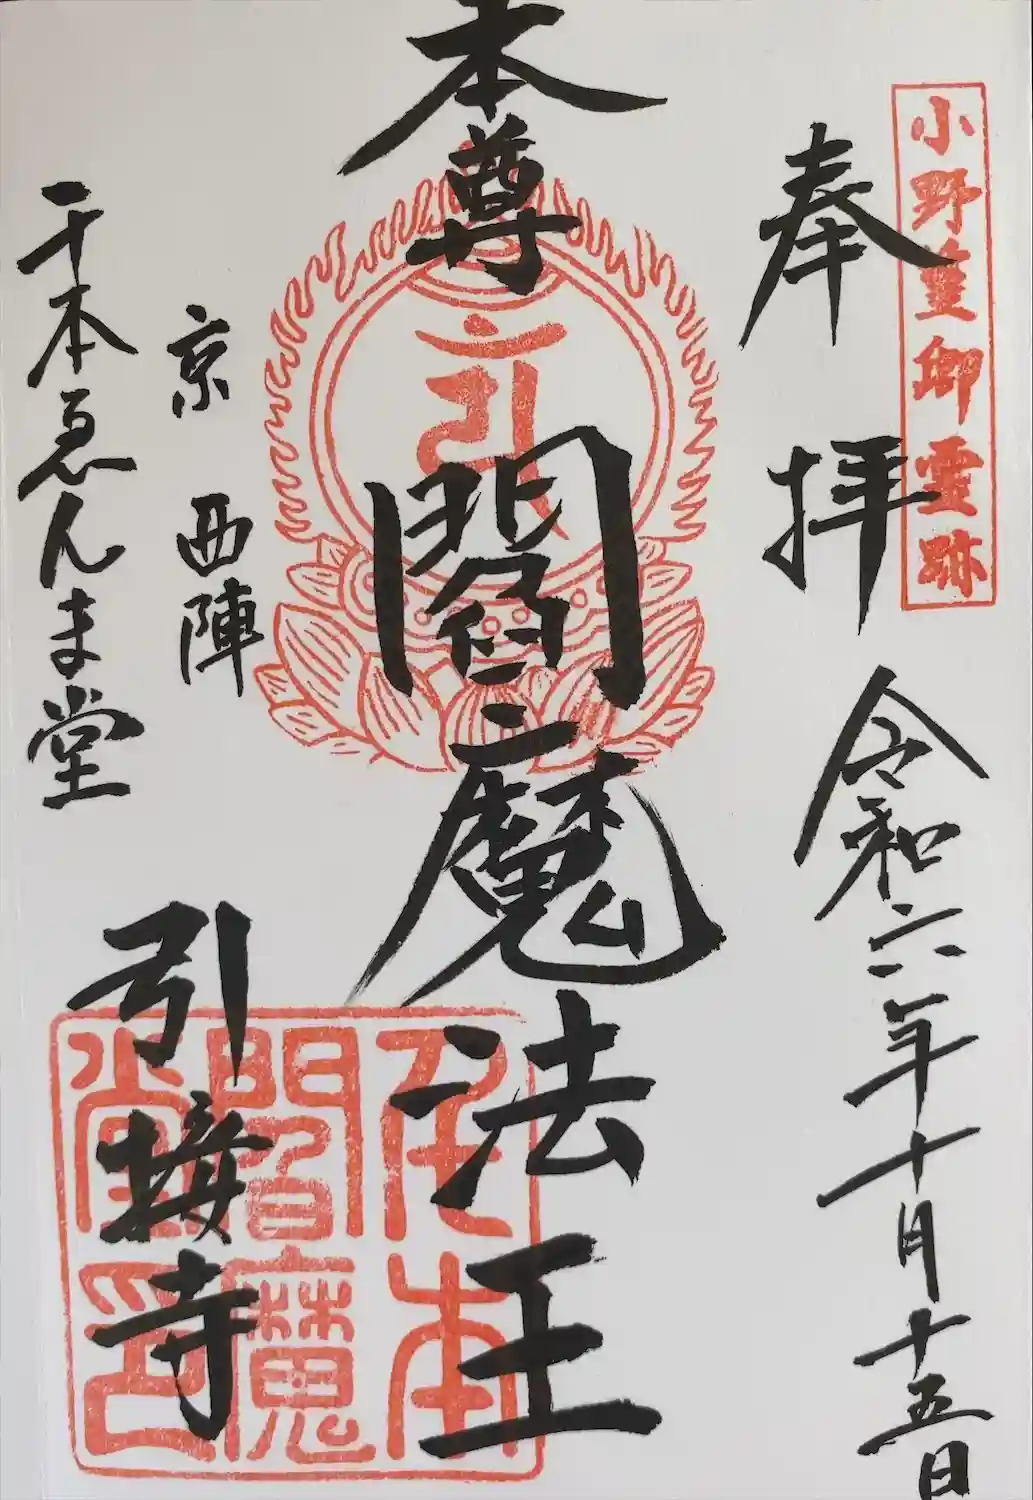 小野篁卿霊跡
奉拝
令和六年十月十五日
本尊
閻魔法王
京 西陣
千本ゑんま堂
引接寺
千本
閻魔
堂印